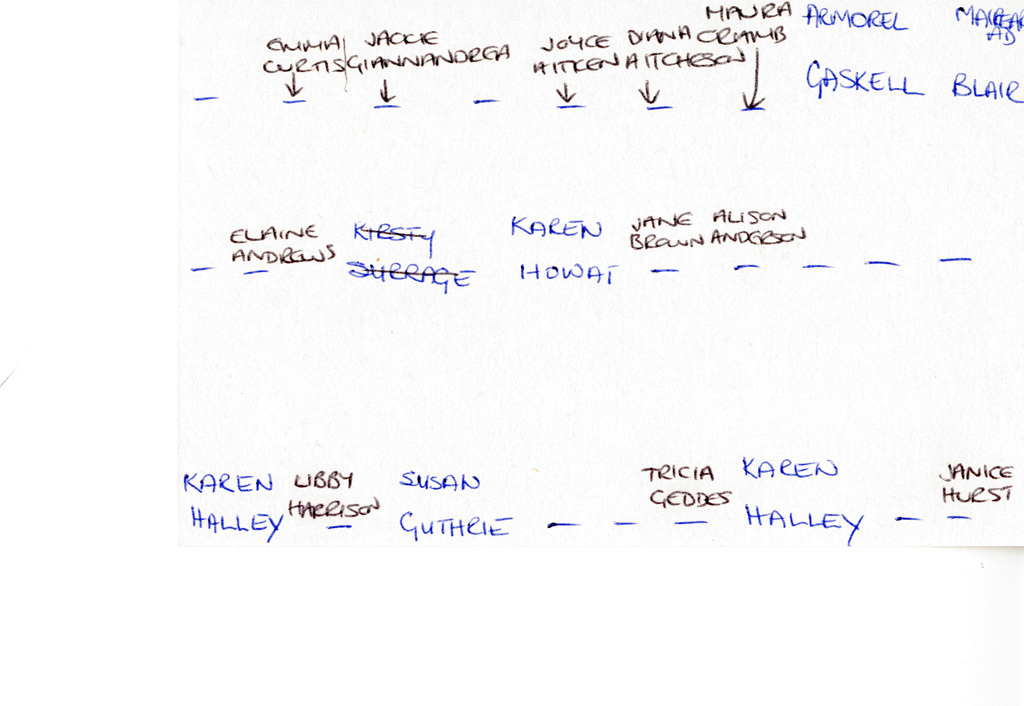 EMMA JACKIE JOYCE DIANA MAURA ARMOREL MAIREAD
CURTIS GIANNANDREA AITKEN AITCHESON CRAMB GASKELL BLAIR
— — — — — — —
ELAINE KIRSTY KAREN JANE ALISON
ANDREWS SURRAGE HOWAT BROWN ANDERSON
— — — — — — —
KAREN LIBBY SUSAN TRICIA KAREN JANICE
HALLEY HARRISON GUTHRIE GEDDES HALLEY HURST
— — — — — —